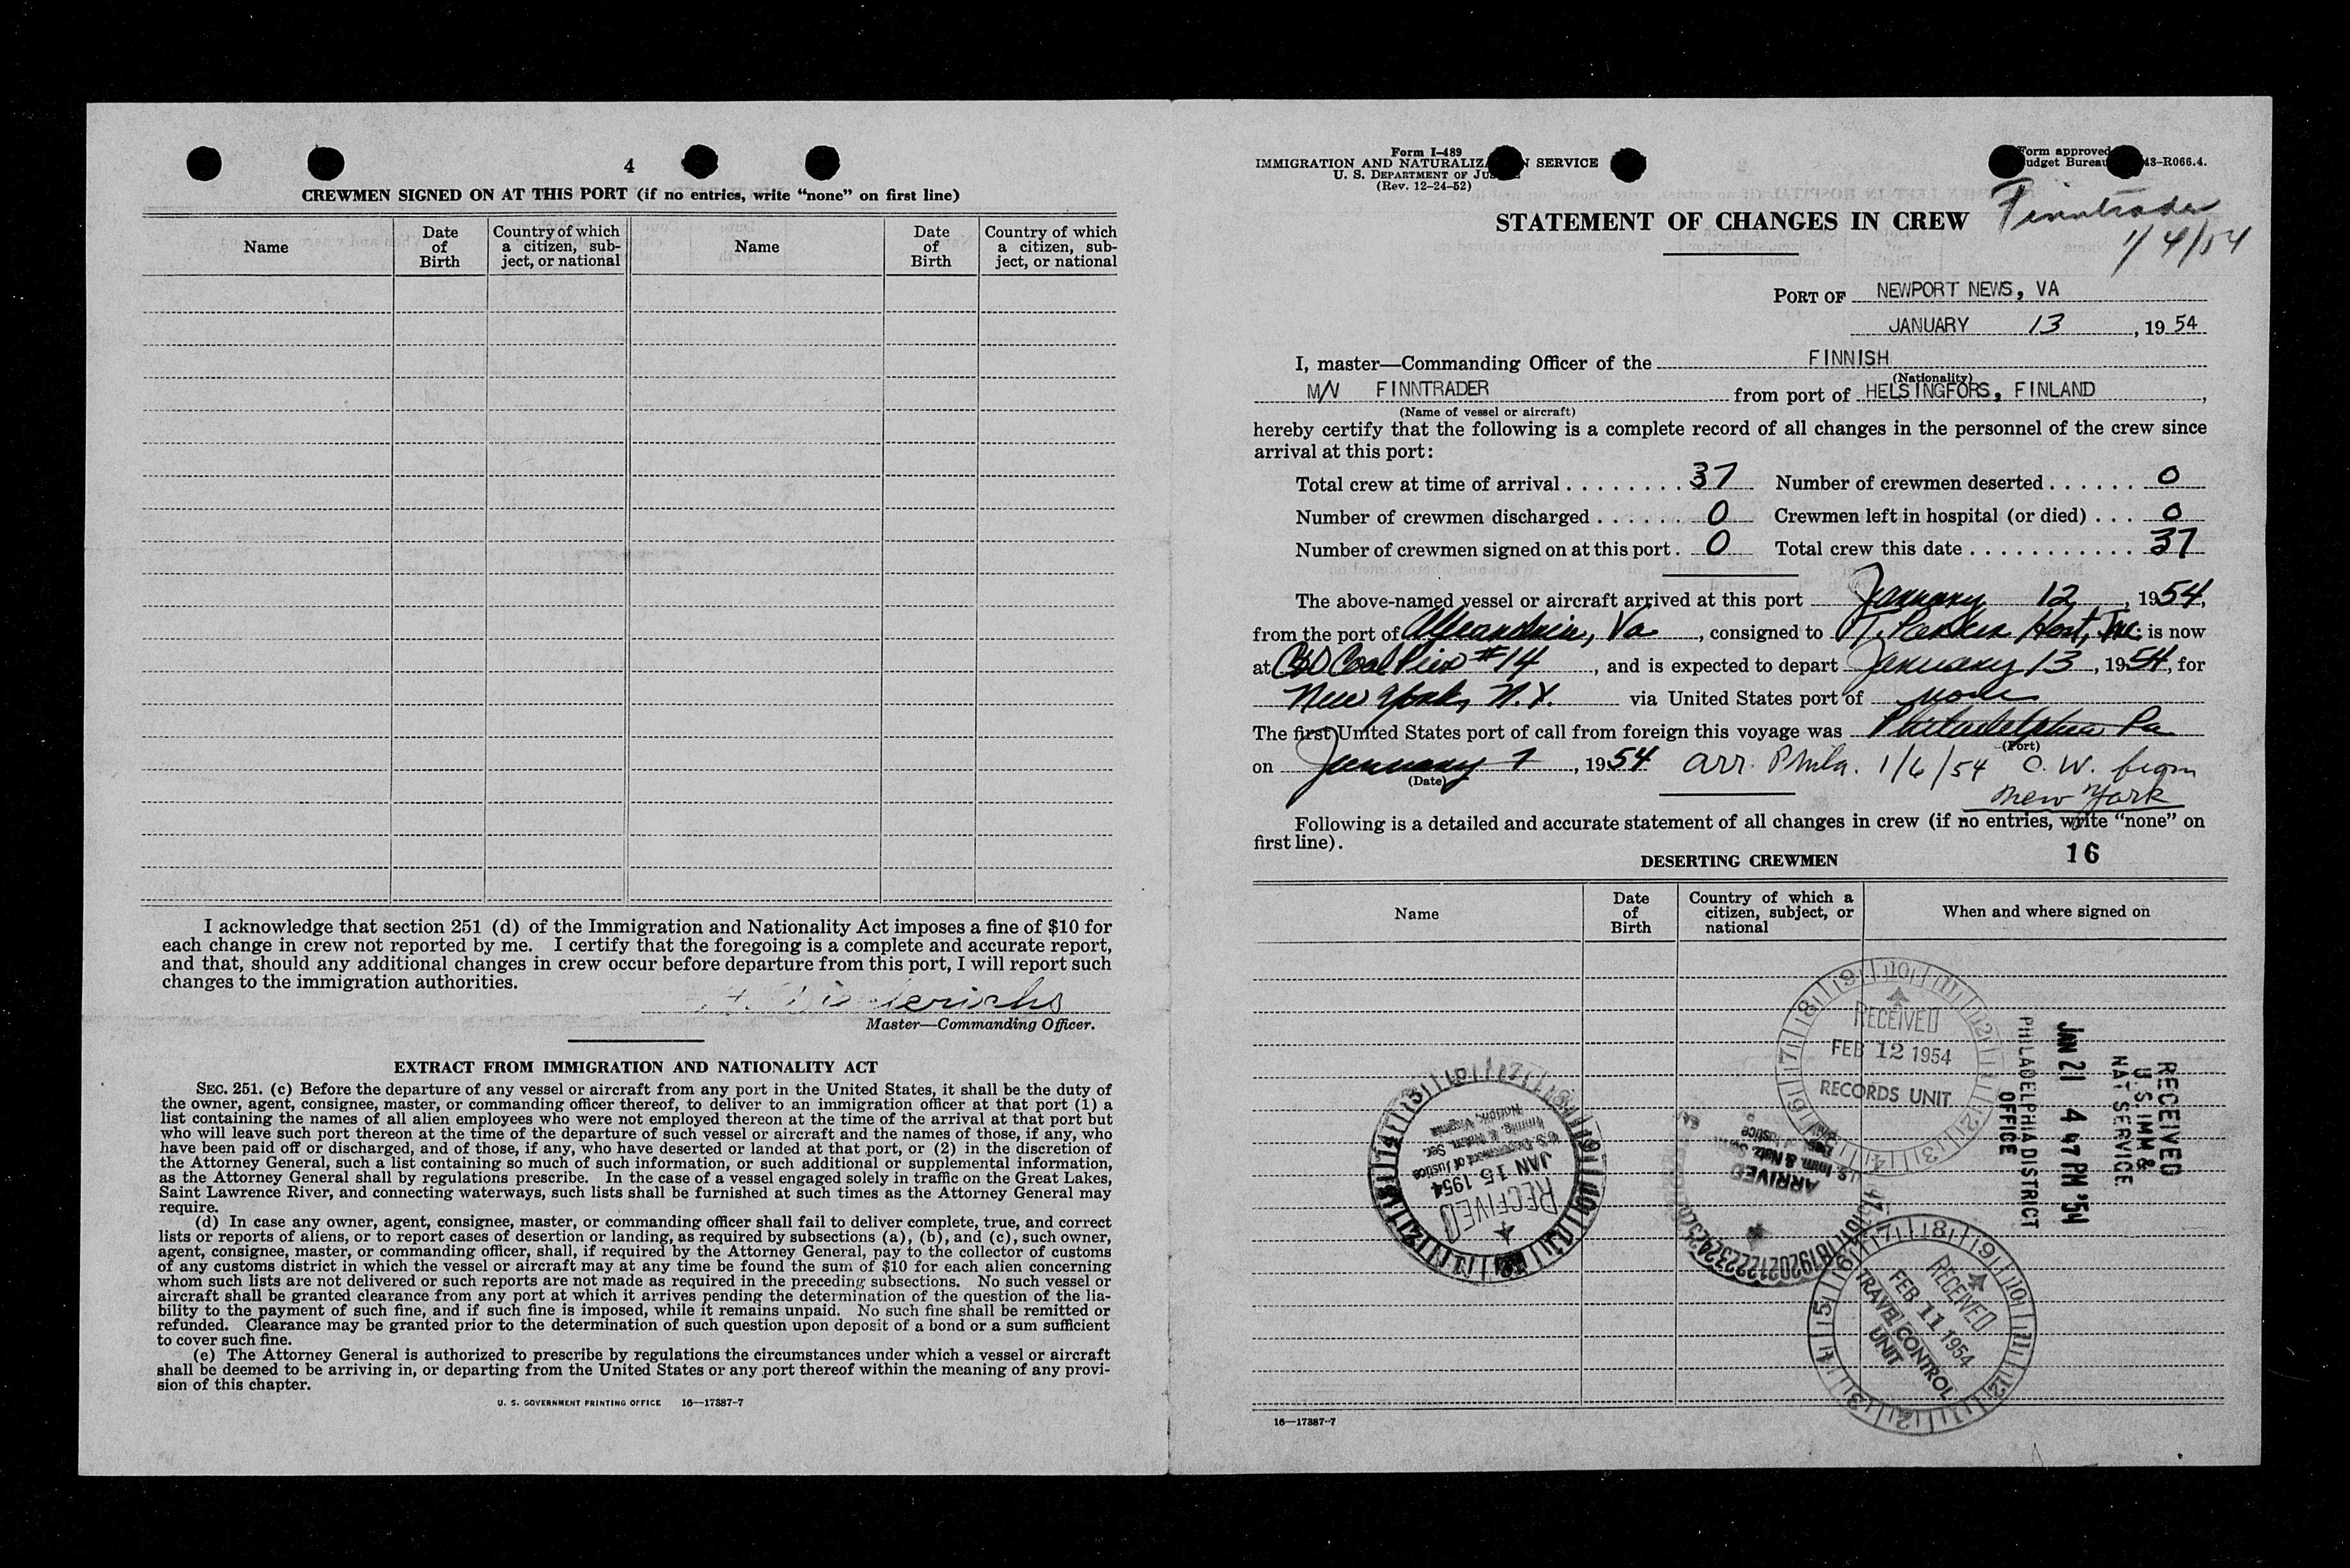 4
CREWMEN SIGNED ON AT THIS PORT (if no entries, write “none” on first line)
Name
Date of Birth
Country of which a citizen, sub-ject, or national
Name
Date of Birth
Country of which a citizen, sub-ject, or national
I acknowledge that section 251 (d) of the Immigration and Nationality Act imposes a fine of $10 for
each change in crew not reported by me. I certify that the foregoing is a complete and accurate report,
and that, should any additional changes in crew occur before departure from this port, I will report such
changes to the immigration authorities.
Master—Commanding Officer.
EXTRACT FROM IMMIGRATION AND NATIONALITY ACT
SEC. 251. (c) Before the departure of any vessel or aircraft from any port in the United States, it shall be the duty of
the owner, agent, consignee, master, or commanding officer thereof, to deliver to an immigration officer at that port (1) a
list containing the names of all alien employees who were not employed thereon at the time of the arrival at that port but
who will leave such port thereon at the time of the departure of such vessel or aircraft and the names of those, if any, who
have been paid off or discharged, and of those, if any, who have deserted or landed at that port, or (2) in the discretion of
the Attorney General, such a list containing so much of such information, or such additional or supplemental information,
as the Attorney General shall by regulations prescribe. In the case of a vessel engaged solely in traffic on the Great Lakes,
Saint Lawrence River, and connecting waterways, such lists shall be furnished at such times as the Attorney General may
require.
(d) In case any owner, agent, consignee, master, or commanding officer shall fail to deliver complete, true, and correct
lists or reports of aliens, or to report cases of desertion or landing, as required by subsections (a), (b), and (c), such owner,
agent, consignee, master, or commanding officer, shall, if required by the Attorney General, pay to the collector of customs
of any customs district in which the vessel or aircraft may at any time be found the sum of $10 for each alien concerning
whom such lists are not delivered or such reports are not made as required in the preceding subsections. No such vessel or
aircraft shall be granted clearance from any port at which it arrives pending the determination of the question of the lia-
bility to the payment of such fine, and if such fine is imposed, while it remains unpaid. No such fine shall be remitted or
refunded. Clearance may be granted prior to the determination of such question upon deposit of a bond or a sum sufficient
to cover such fine.
(e) The Attorney General is authorized to prescribe by regulations the circumstances under which a vessel or aircraft
shall be deemed to be arriving in, or departing from the United States or any port thereof within the meaning of any provi-
sion of this chapter.
U. S. GOVERNMENT PRINTING OFFICE 16—17387-7
Form I-489
IMMIGRATION AND NATURALIZATION SERVICE
U. S. DEPARTMENT OF JUSTICE
(Rev. 12-24-52)
Form approved
Budget Bureau 43-R066.4.
Finntrader
1/4/54
STATEMENT OF CHANGES IN CREW
PORT OF NEWPORT NEWS, VA
JANUARY 13, 1954
I, master—Commanding Officer of the FINNISH
(Nationality)
M/V FINNTRADER from port of HELSINGFORS, FINLAND,
(Name of vessel or aircraft)
hereby certify that the following is a complete record of all changes in the personnel of the crew since
arrival at this port:
Total crew at time of arrival 37 Number of crewmen deserted 0
Number of crewmen discharged 0 Crewmen left in hospital (or died) 0
Number of crewmen signed on at this port. 0 Total crew this date 37
The above-named vessel or aircraft arrived at this port January 12, 1954,
from the port of Alexandria, Va, consigned to T. Parker Host, Inc. is now
at C&O Coal Pier #14, and is expected to depart January 13, 1954, for
New York, N.Y. via United States port of none
The first United States port of call from foreign this voyage was Philadelphia Pa
(Port)
on January 7, 1954 arr. Phila. 1/6/54 C.W. from
(Date)
New York
Following is a detailed and accurate statement of all changes in crew (if no entries, write “none” on
first line).
DESERTING CREWMEN
16
Name
Date of Birth
Country of which a citizen, subject, or national
When and where signed on
RECEIVED
FEB 12 1954
RECORDS UNIT
RECEIVED
U.S. IMM &
NAT SERVICE
JAN 21 4 47 PM '54
PHILADELPHIA DISTRICT
OFFICE
RECEIVED
JAN 15 1954
U.S. Department of Justice
Immig. & Natzn. Ser.
Norfolk, Virginia
ARRIVED
U.S. Imm. & Natz. Ser.
RECEIVED
FEB 11 1954
TRAVEL CONTROL
UNIT
16—17387-7